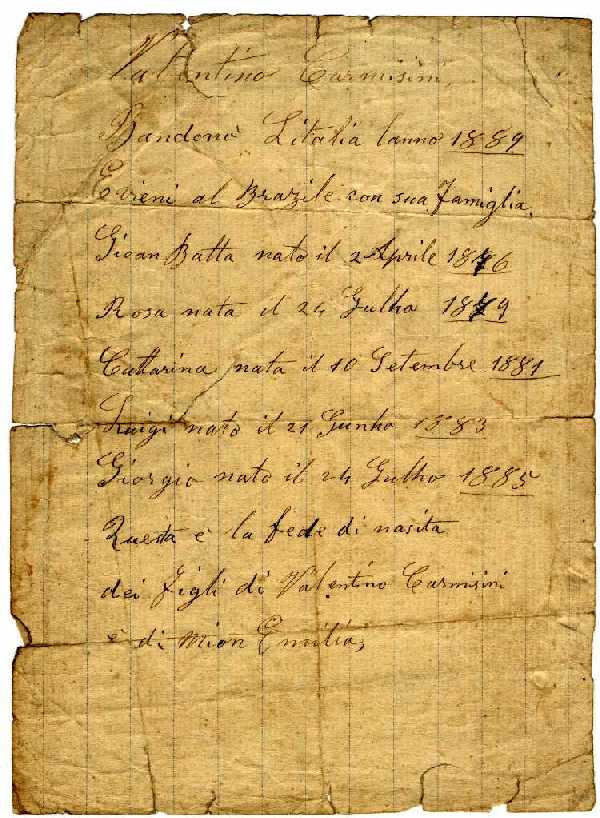 Valentino Carmisini
Bandonò L'italia lanno 1889
E vieni al Brazile con sua famiglia,
Gioan Batta nato il 2 Aprile 1876
Rosa nata il 24 Gulha 1879
Cattarina nata il 10 Setembre 1881
Luigi nato il 21 Gunho 1883
Giorgio nato il 24 Gulho 1885
Questa è la fede di nasita
dei figli di Valentino Carmisini
è di Mion Emilia;